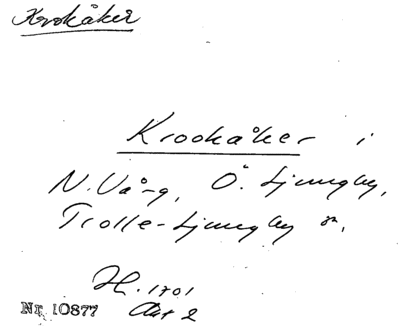 Krokåker
Krookåker i
N. Vång, Ö. Ljungby,
Trolle-Ljungby sn.
H. 1701
Akt 2
Nr. 10877